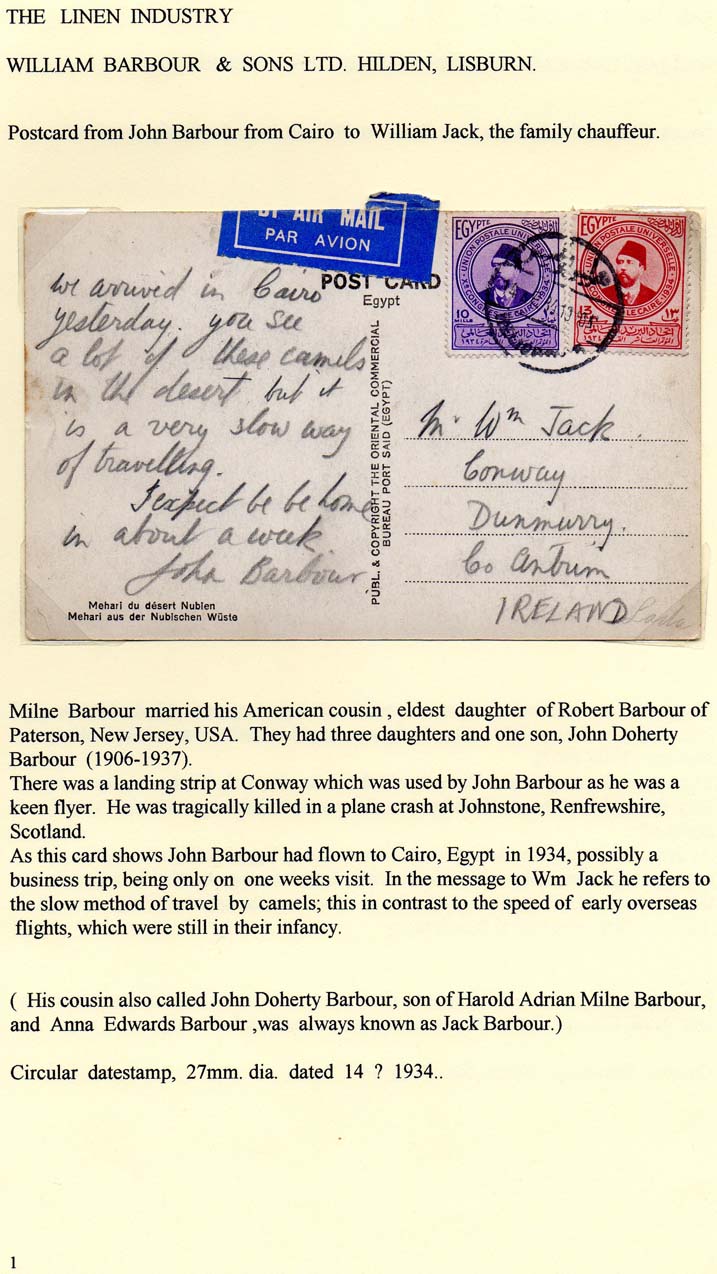 THE LINEN INDUSTRY
WILLIAM BARBOUR & SONS LTD. HILDEN, LISBURN.
Postcard from John Barbour from Cairo to William Jack, the family chauffeur.
BY AIR MAIL
PAR AVION
POST CARD
Egypt
we arrived in Cairo
yesterday. you see
a lot of these camels
in the desert but it
is a very slow way
of travelling.
I expect be be home
in about a week
John Barbour
Mehari du désert Nubien
Mehari aus der Nubischen Wüste
PUBL. & COPYRIGHT THE ORIENTAL COMMERCIAL
BUREAU PORT SAID (EGYPT)
EGYPTE
UNION POSTALE UNIVERSELLE
10
MILLS
إتحاد البريد العالمى
١٩٣٤
EGYPTE
UNION POSTALE UNIVERSELLE
13
١٣
إتحاد البريد العالمى
١٩٣٤
Mr Wm Jack.
Conway
Dunmurry.
Co Antrim
IRELAND
Milne Barbour married his American cousin , eldest daughter of Robert Barbour of
Paterson, New Jersey, USA. They had three daughters and one son, John Doherty
Barbour (1906-1937).
There was a landing strip at Conway which was used by John Barbour as he was a
keen flyer. He was tragically killed in a plane crash at Johnstone, Renfrewshire,
Scotland.
As this card shows John Barbour had flown to Cairo, Egypt in 1934, possibly a
business trip, being only on one weeks visit. In the message to Wm Jack he refers to
the slow method of travel by camels; this in contrast to the speed of early overseas
flights, which were still in their infancy.
( His cousin also called John Doherty Barbour, son of Harold Adrian Milne Barbour,
and Anna Edwards Barbour ,was always known as Jack Barbour.)
Circular datestamp, 27mm. dia. dated 14 ? 1934..
1